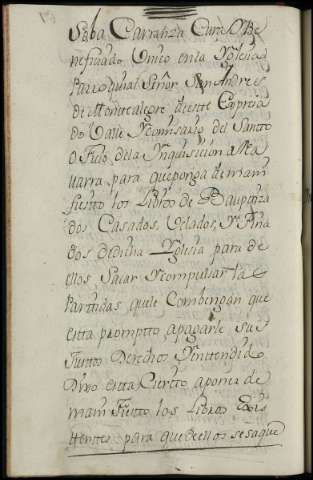 Seba Carranza Cura y Be
neficiado Unico en la Yglesia
Parroquial Señor San Andres
de Montecalegre de este Expresa
do Valle y Comisario del Santo
Oficio de la Ynquisicion de Na
varra para que ponga de mani
fiestto los Libros de Baupttiza
dos Casados, Velados, y Fina
dos de dicha Yglesia para de
ellos Sacar y Compulsar la
Parttidas que le Combengan que
esta promptto a pagarle sus
Justtos Derechos Yenttendido
Dixo esta Ciertto a poner de
mani fiestto los Libros Exis
ttenttes para que de ellos se saque